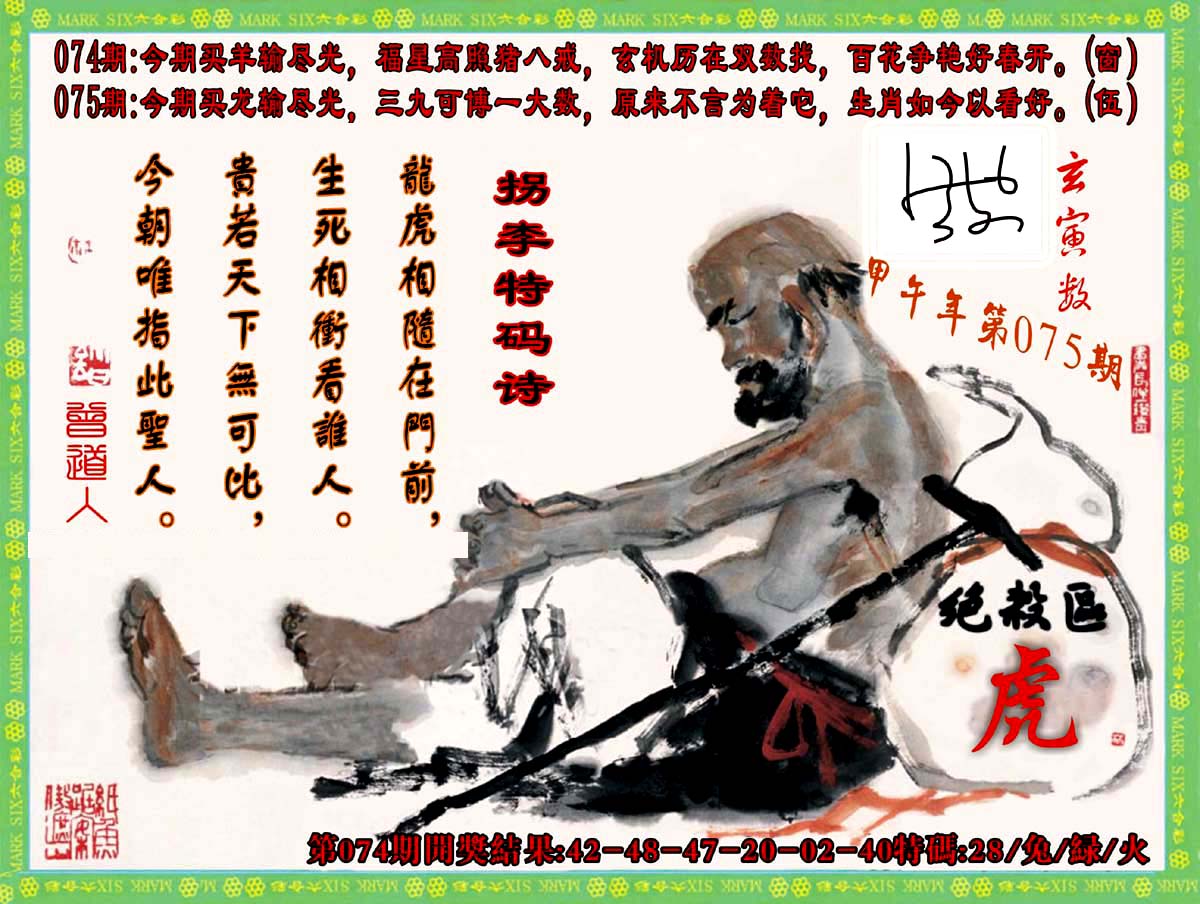 MARK SIX六合彩 MARK SIX六合彩 MARK SIX六合彩 MARK SIX六合彩 MARK SIX六合彩 MARK SIX六合彩
074期:今期买羊输尽光，福星高照猪八戒，玄机历在双数找，百花争艳好春开。(窗)
075期:今期买龙输尽光，三九可博一大数，原来不言为着它，生肖如今以看好。(伍)
玄寅数
甲午年第075期
拐李特码诗
龍虎相隨在門前，
生死相衝看誰人。
貴若天下無可比，
今朝唯指此聖人。
曾道人
绝殺區
虎
第074期開獎結果:42-48-47-20-02-40特碼:28/兔/緑/火